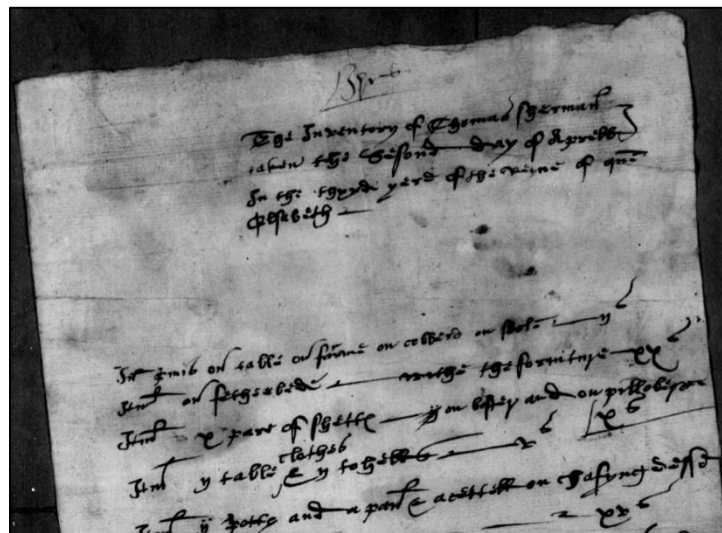 The Inventory of Thomas Sherman
taken the Second day of Aprell
In the thyrde yere of the reine of quē
Elsebeth
on table on furme on cobberd on stole ij s
Itm on fetherbede withe the forniture xx s
Itm x pare of shetts and on pillobere
x s
clothes
Itm ij table & ij tohells v s
Itm ij potts and a pan & a cettell on chafyng desse
xv s